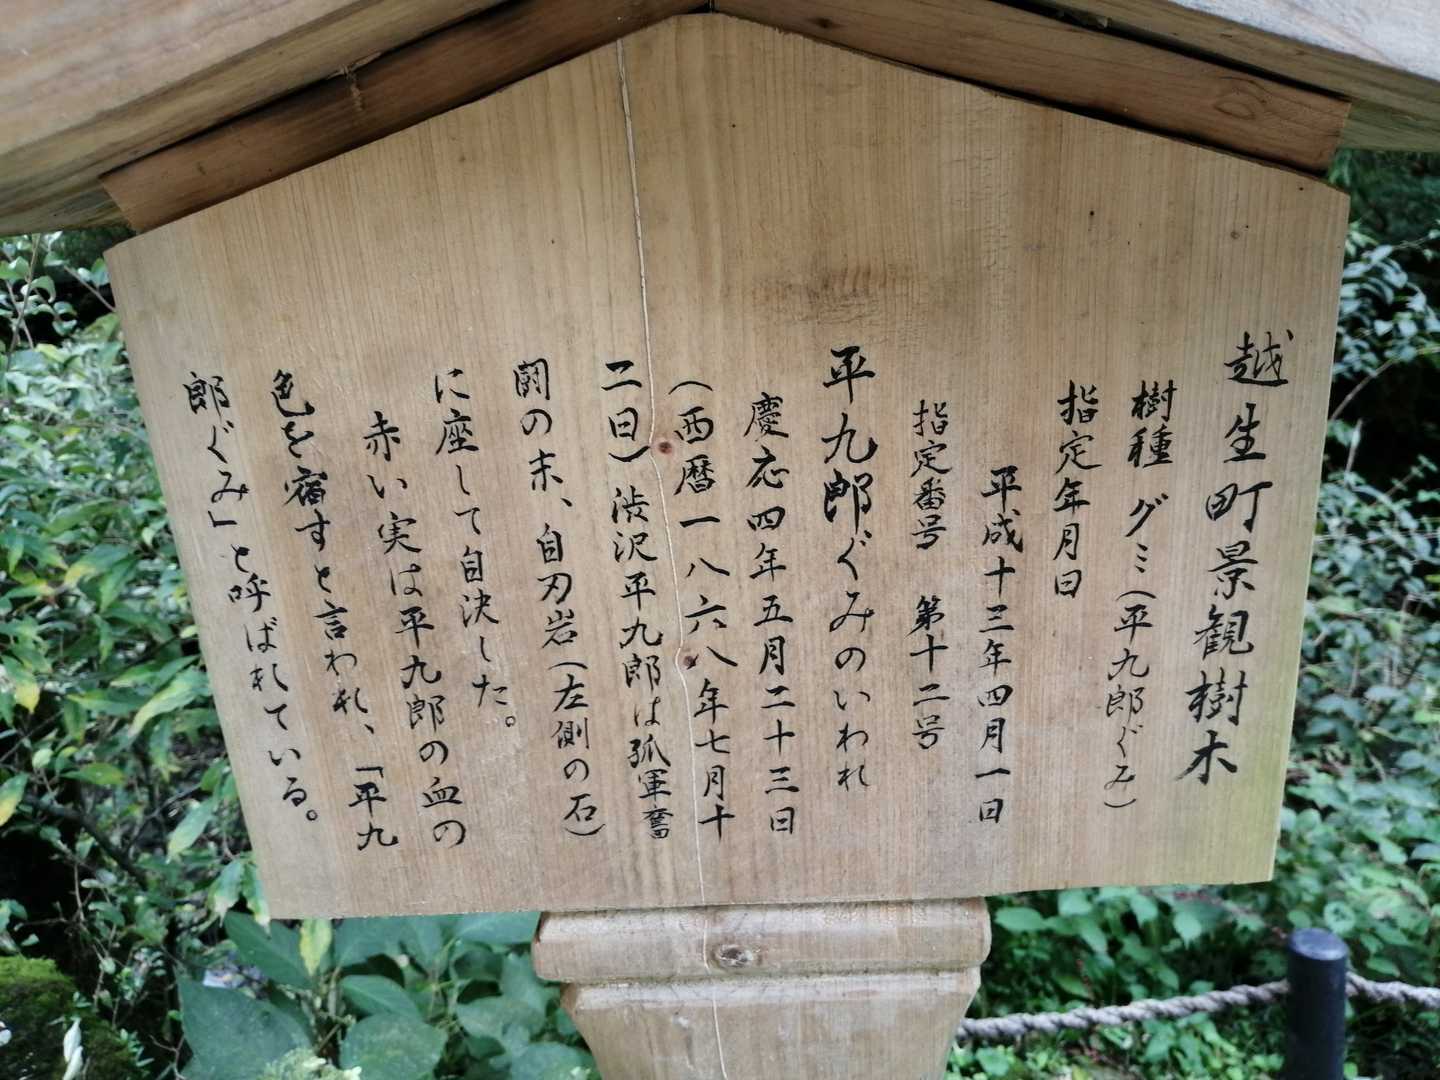 越生町景観樹木
樹種 グミ（平九郎ぐみ）
指定年月日
平成十三年四月一日
指定番号 第十二号
平九郎ぐみのいわれ
慶応四年五月二十三日
（西暦一八六八年七月十
二日）渋沢平九郎は孤軍奮
闘の末、自刃岩（左側の石）
に座して自決した。
赤い実は平九郎の血の
色を宿すと言われ、「平九
郎ぐみ」と呼ばれている。